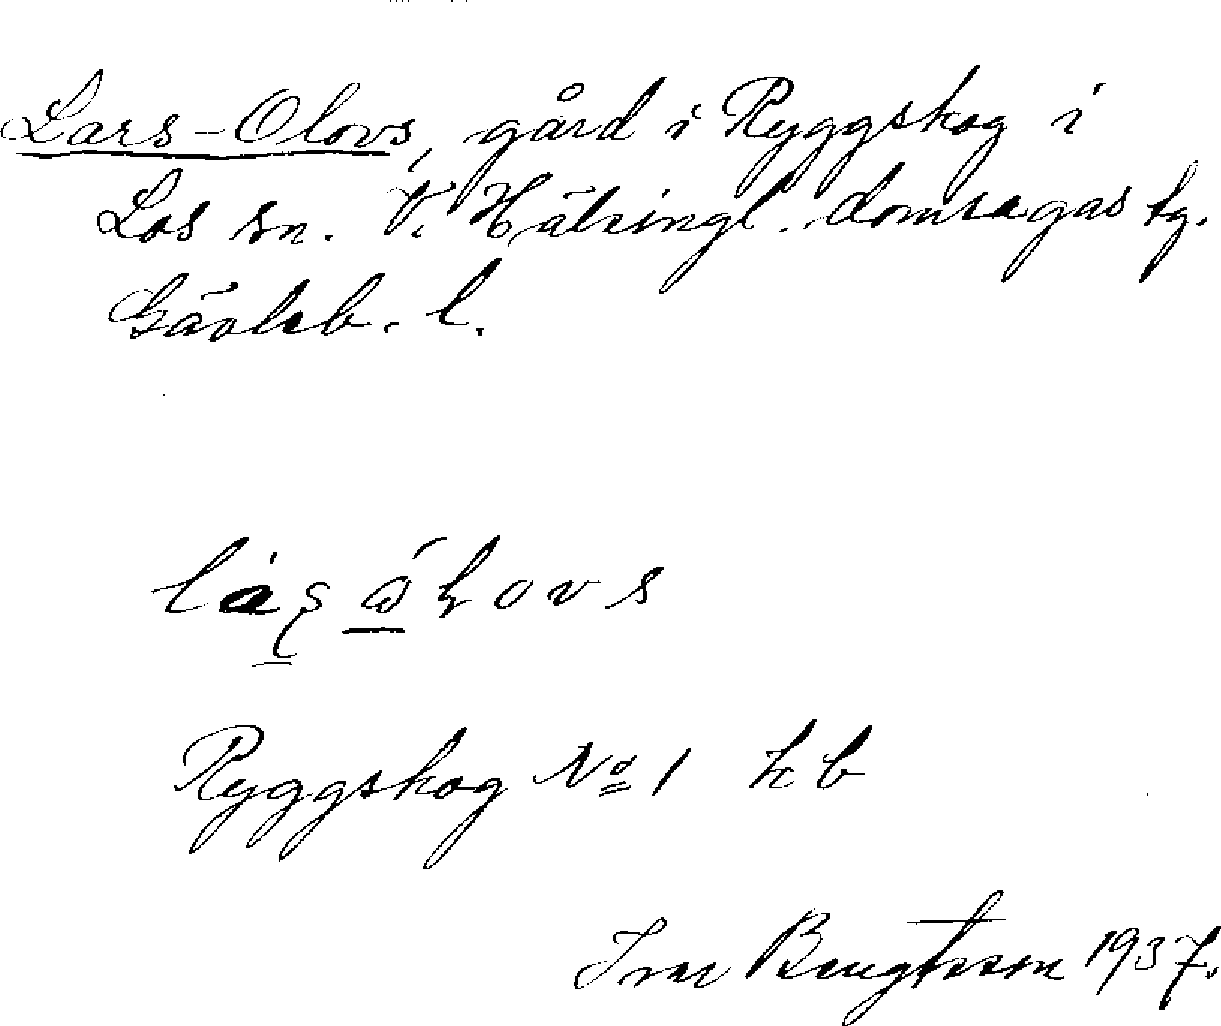 Lars-Olovs, gård i Ryggskog i
Los sn. V. Hälsingl. domsagas tg.
Gävleb. l.
Ryggskog No 1 kb
Ivar Bengtsson 1937.